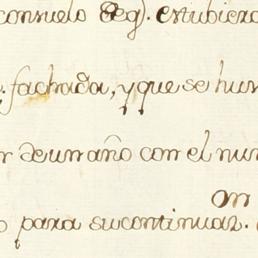 consuelo Seg). estubiera
fachada, y que se hun
de un año con el nu
On
para su continuar.